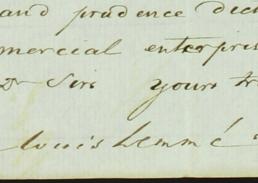 and prudence dec
mercial enterpris
Dr Sirs yours tr
Louis Lemmé